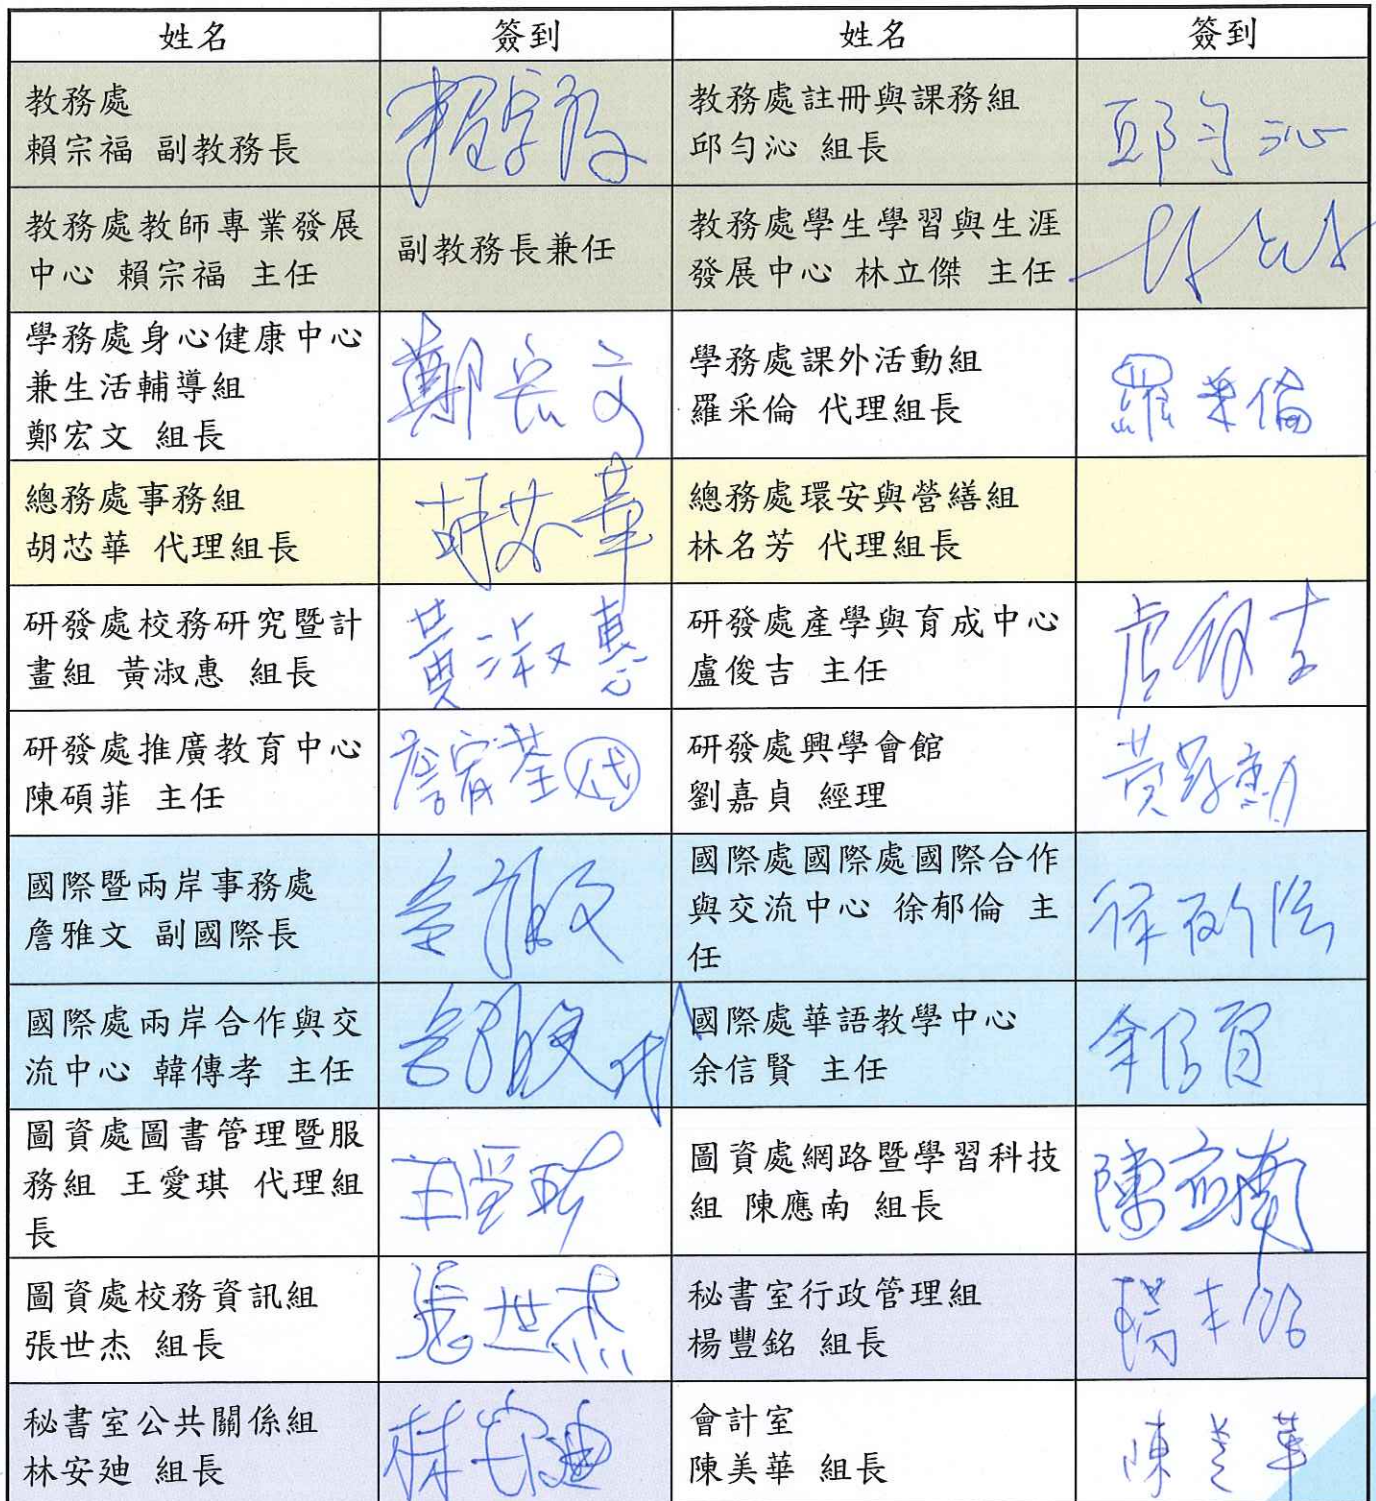 姓名 簽到 姓名 簽到
教務處
賴宗福 副教務長
賴宗福
教務處註冊與課務組
邱勻沁 組長
邱勻沁
教務處教師專業發展
中心 賴宗福 主任
副教務長兼任
教務處學生學習與生涯
發展中心 林立傑 主任
學務處身心健康中心
兼生活輔導組
鄭宏文 組長
鄭宏文
學務處課外活動組
羅采倫 代理組長
羅采倫
總務處事務組
胡芯華 代理組長
胡芯華
總務處環安與營繕組
林名芳 代理組長
研發處校務研究暨計
畫組 黃淑惠 組長
黃淑惠
研發處產學與育成中心
盧俊吉 主任
盧俊吉
研發處推廣教育中心
陳碩菲 主任
代
研發處興學會館
劉嘉貞 經理
國際暨兩岸事務處
詹雅文 副國際長
詹雅文
國際處國際處國際合作
與交流中心 徐郁倫 主
任
徐郁倫
國際處兩岸合作與交
流中心 韓傳孝 主任
詹雅文代
國際處華語教學中心
余信賢 主任
余信賢
圖資處圖書管理暨服
務組 王愛琪 代理組
長
王愛琪
圖資處網路暨學習科技
組 陳應南 組長
陳應南
圖資處校務資訊組
張世杰 組長
張世杰
秘書室行政管理組
楊豐銘 組長
楊丰銘
秘書室公共關係組
林安廸 組長
林安廸
會計室
陳美華 組長
陳美華